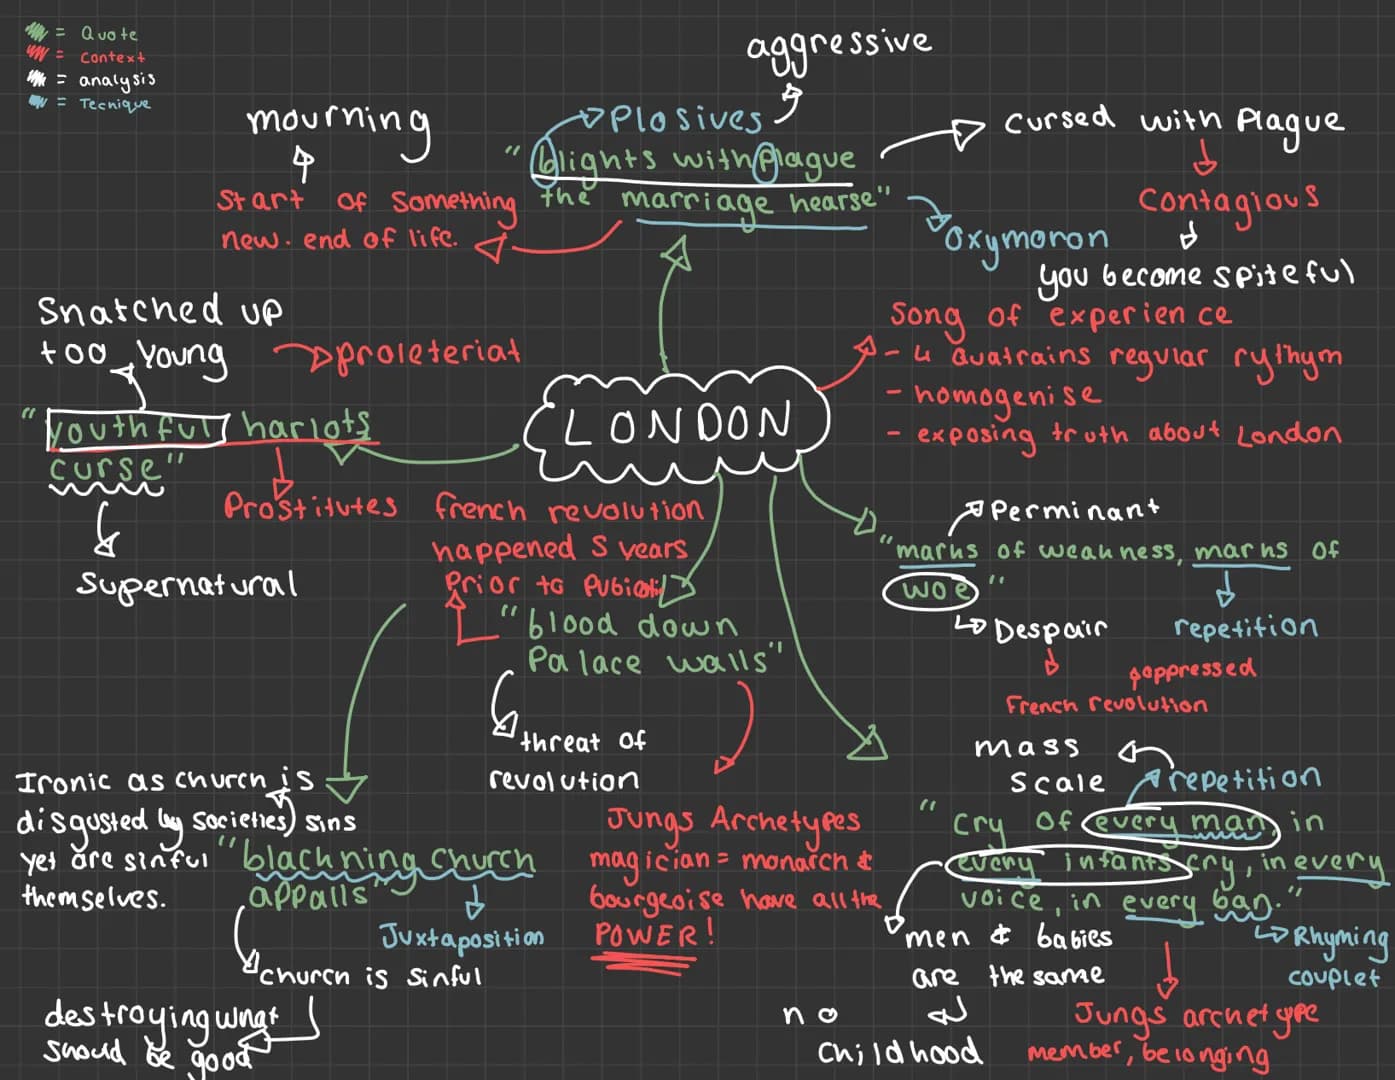 = Quote
= Context
= analysis
= Tecnique
aggressive
mourning
Plosives
cursed with Plague
"blights with plague
the marriage hearse"
Start of Something
new. end of life.
Contagious
Oxymoron
you become spiteful
Snatched up
too young
proleteriat
Song of experience
- 4 Quatrains regular rythym
- homogenise
- exposing truth about London
LONDON
"youthful harlots
curse"
Prostitutes
Supernatural
french revolution
happened 5 years
Prior to
"blood down
Palace walls"
threat of
revolution
Perminant
"marks of weakness, marks of
woe"
Despair
repetition
oppressed
French revolution
Ironic as church is
disgusted by societies sins
yet are sinful
themselves.
"blackning church
appalls"
Juxtaposition
church is sinful
destroying what
should be good
Jungs Archetypes
magician = monarch &
bourgeoise have all the
POWER!
mass
scale
repetition
"cry of every man, in
every infants cry, in every
voice, in every ban."
men & babies
are the same
no
childhood
Rhyming
couplet
Jungs archetype
member, belonging